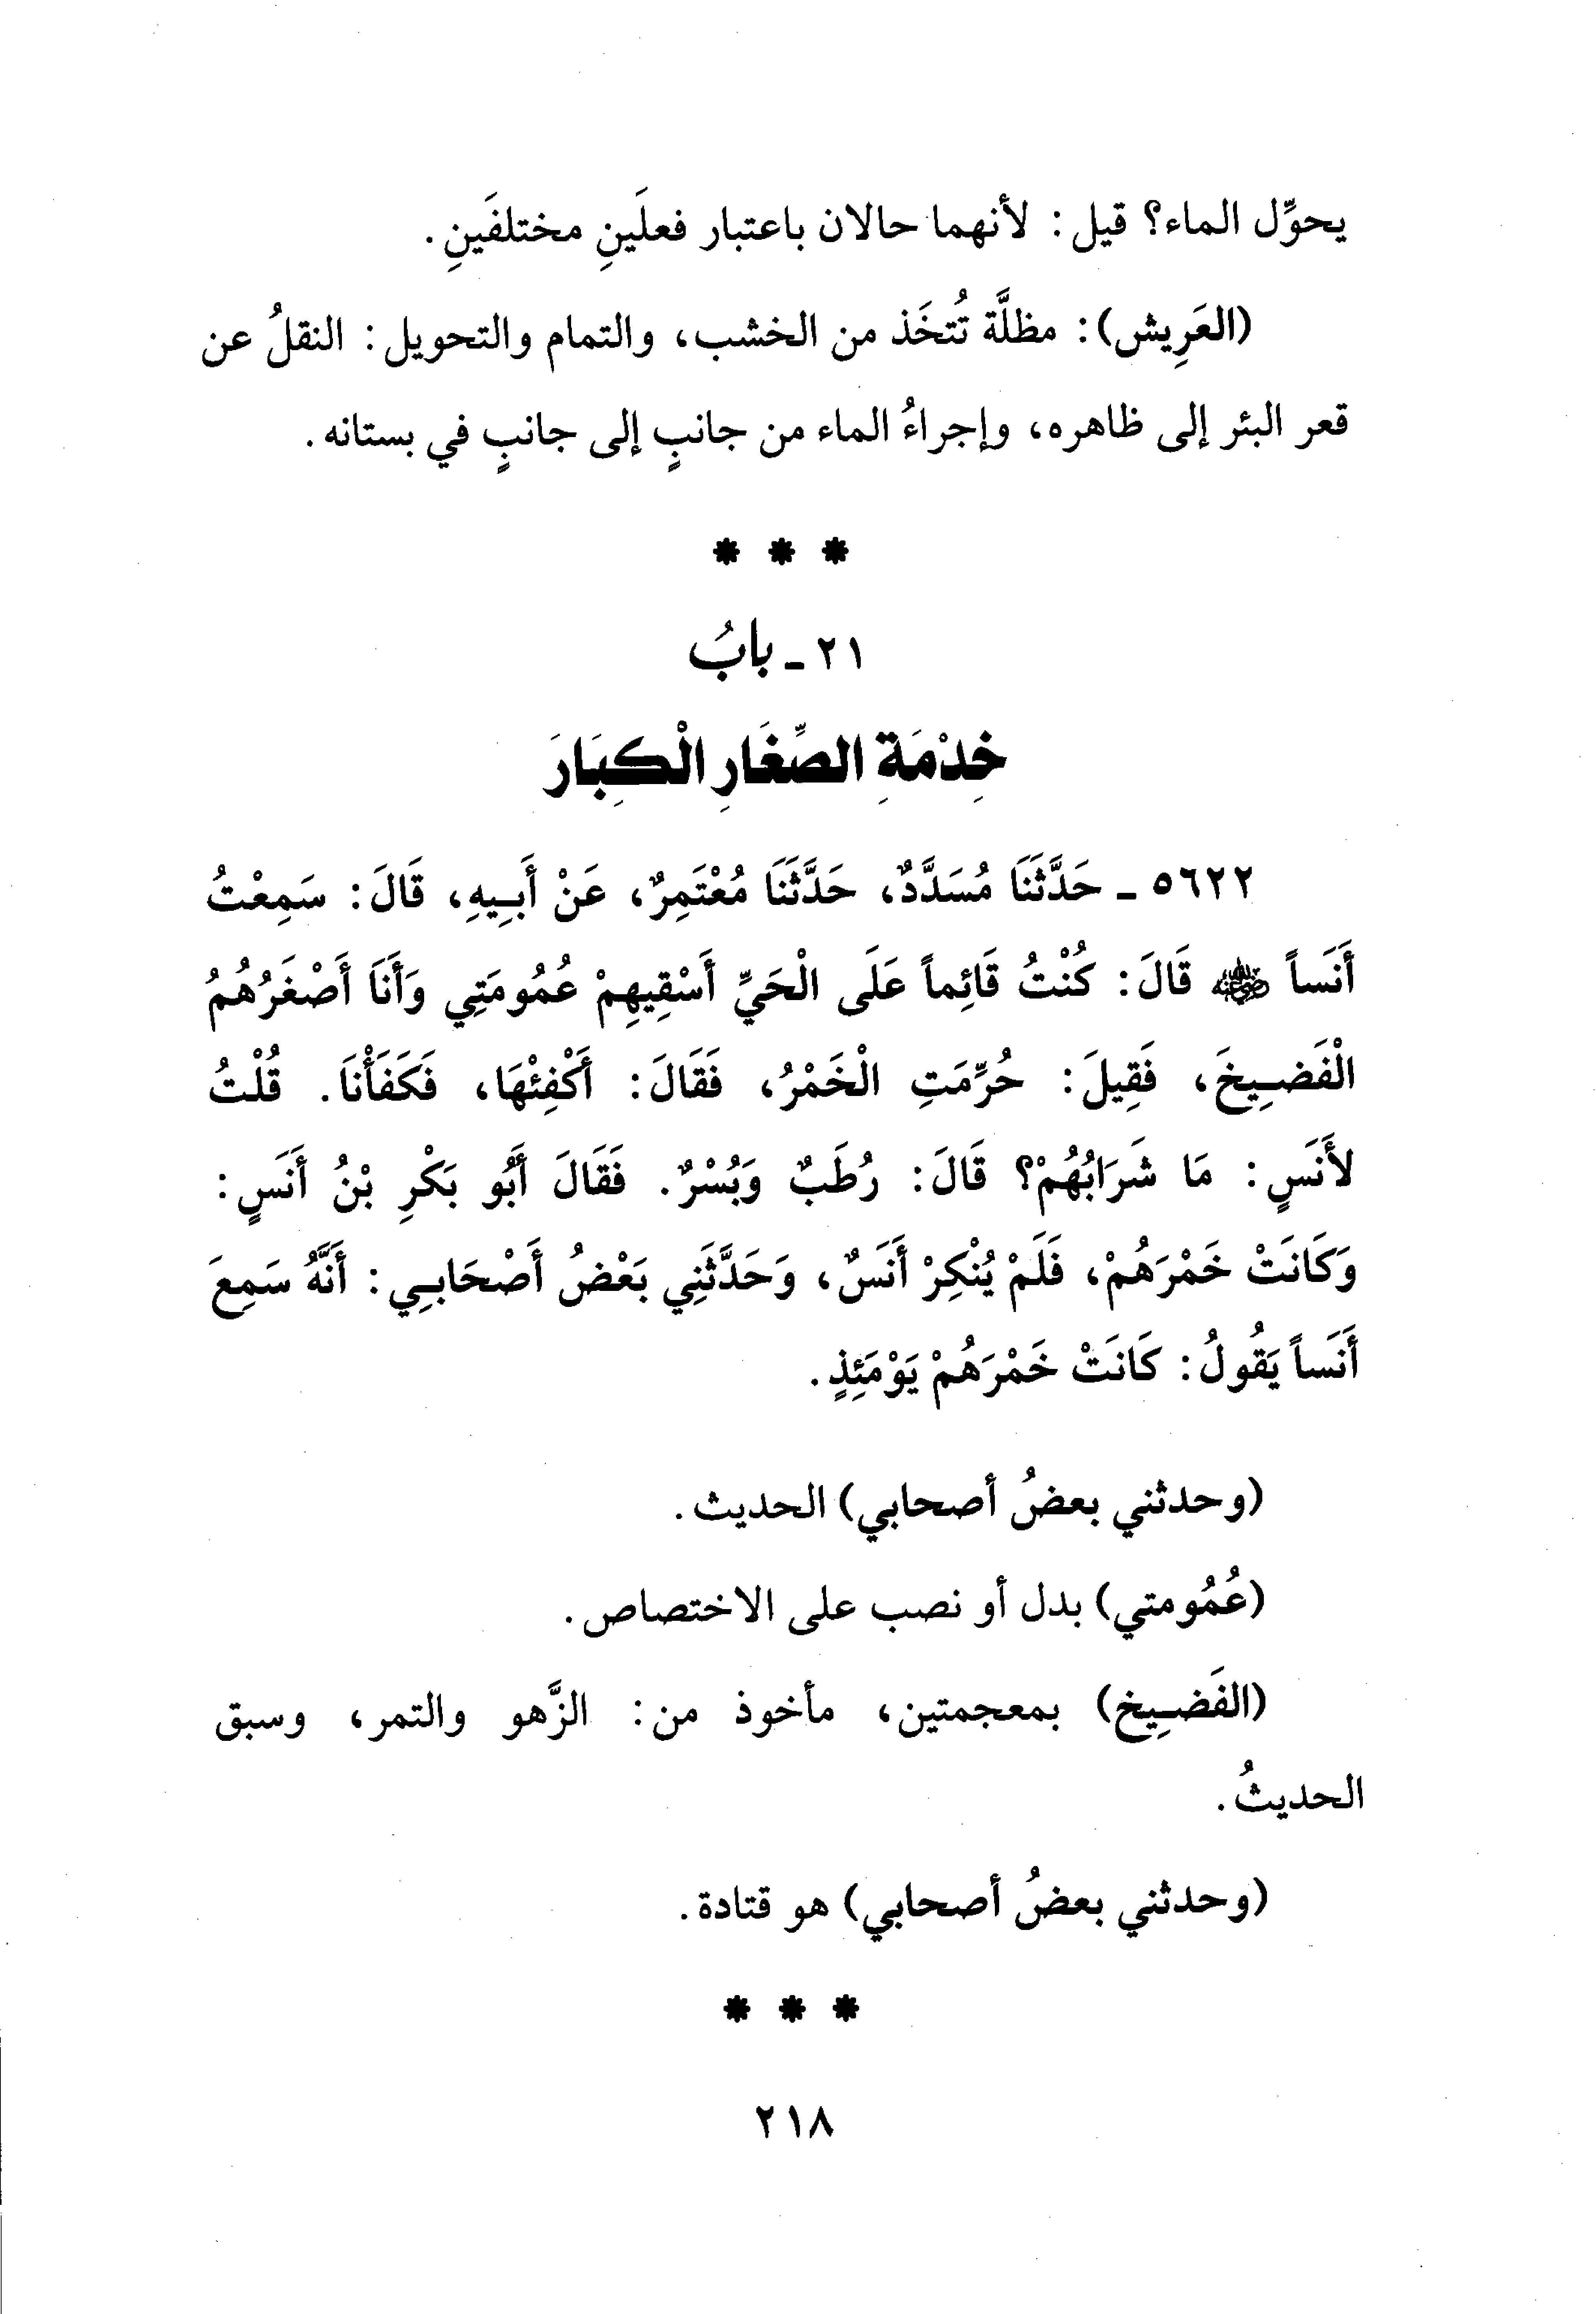 يحوِّل الماء؟ قيل: لأنهما حالان باعتبار فعلَينِ مختلفَينِ.
(العَرِيش): مظلَّة تُتخَذ من الخشب، والتمام والتحويل: النقلُ عن
قعر البئر إلى ظاهره، وإجراءُ الماء من جانبٍ إلى جانبٍ في بستانه.
* * *
٢١ - بابُ
خِدْمَةِ الصِّغَارِ الْكِبَارَ
٥٦٢٢ - حَدَّثَنَا مُسَدَّدٌ، حَدَّثَنَا مُعْتَمِرٌ، عَنْ أَبِيهِ، قَالَ: سَمِعْتُ
أَنَساً ﵁ قَالَ: كُنْتُ قَائِماً عَلَى الْحَيِّ أَسْقِيهِمْ عُمُومَتِي وَأَنَا أَصْغَرُهُمُ
الْفَضِيخَ، فَقِيلَ: حُرِّمَتِ الْخَمْرُ، فَقَالَ: أَكْفِئْهَا، فَكَفَأْنَا. قُلْتُ
لأَنَسٍ: مَا شَرَابُهُمْ؟ قَالَ: رُطَبٌ وَبُسْرٌ. فَقَالَ أَبُو بَكْرِ بْنُ أَنَسٍ:
وَكَانَتْ خَمْرَهُمْ، فَلَمْ يُنْكِرْ أَنَسٌ، وَحَدَّثَنِي بَعْضُ أَصْحَابِي: أَنَّهُ سَمِعَ
أَنَساً يَقُولُ: كَانَتْ خَمْرَهُمْ يَوْمَئِذٍ.
(وحدثني بعضُ أصحابي) الحديث.
(عُمُومتي) بدل أو نصب على الاختصاص.
(الفَضِيخ) بمعجمتين، مأخوذ من: الزَّهو والتمر، وسبق
الحديثُ.
(وحدثني بعضُ أصحابي) هو قتادة.
* * *
٢١٨